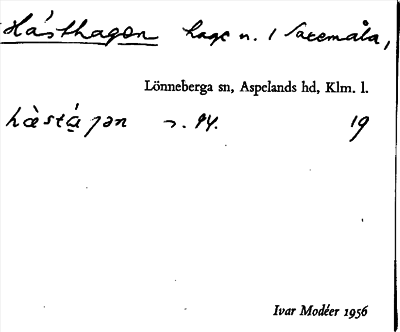 Hásthagen hage n. 1 Saxemåla,
Lönneberga sn, Aspelands hd, Klm. l.
19
Ivar Modéer 1956